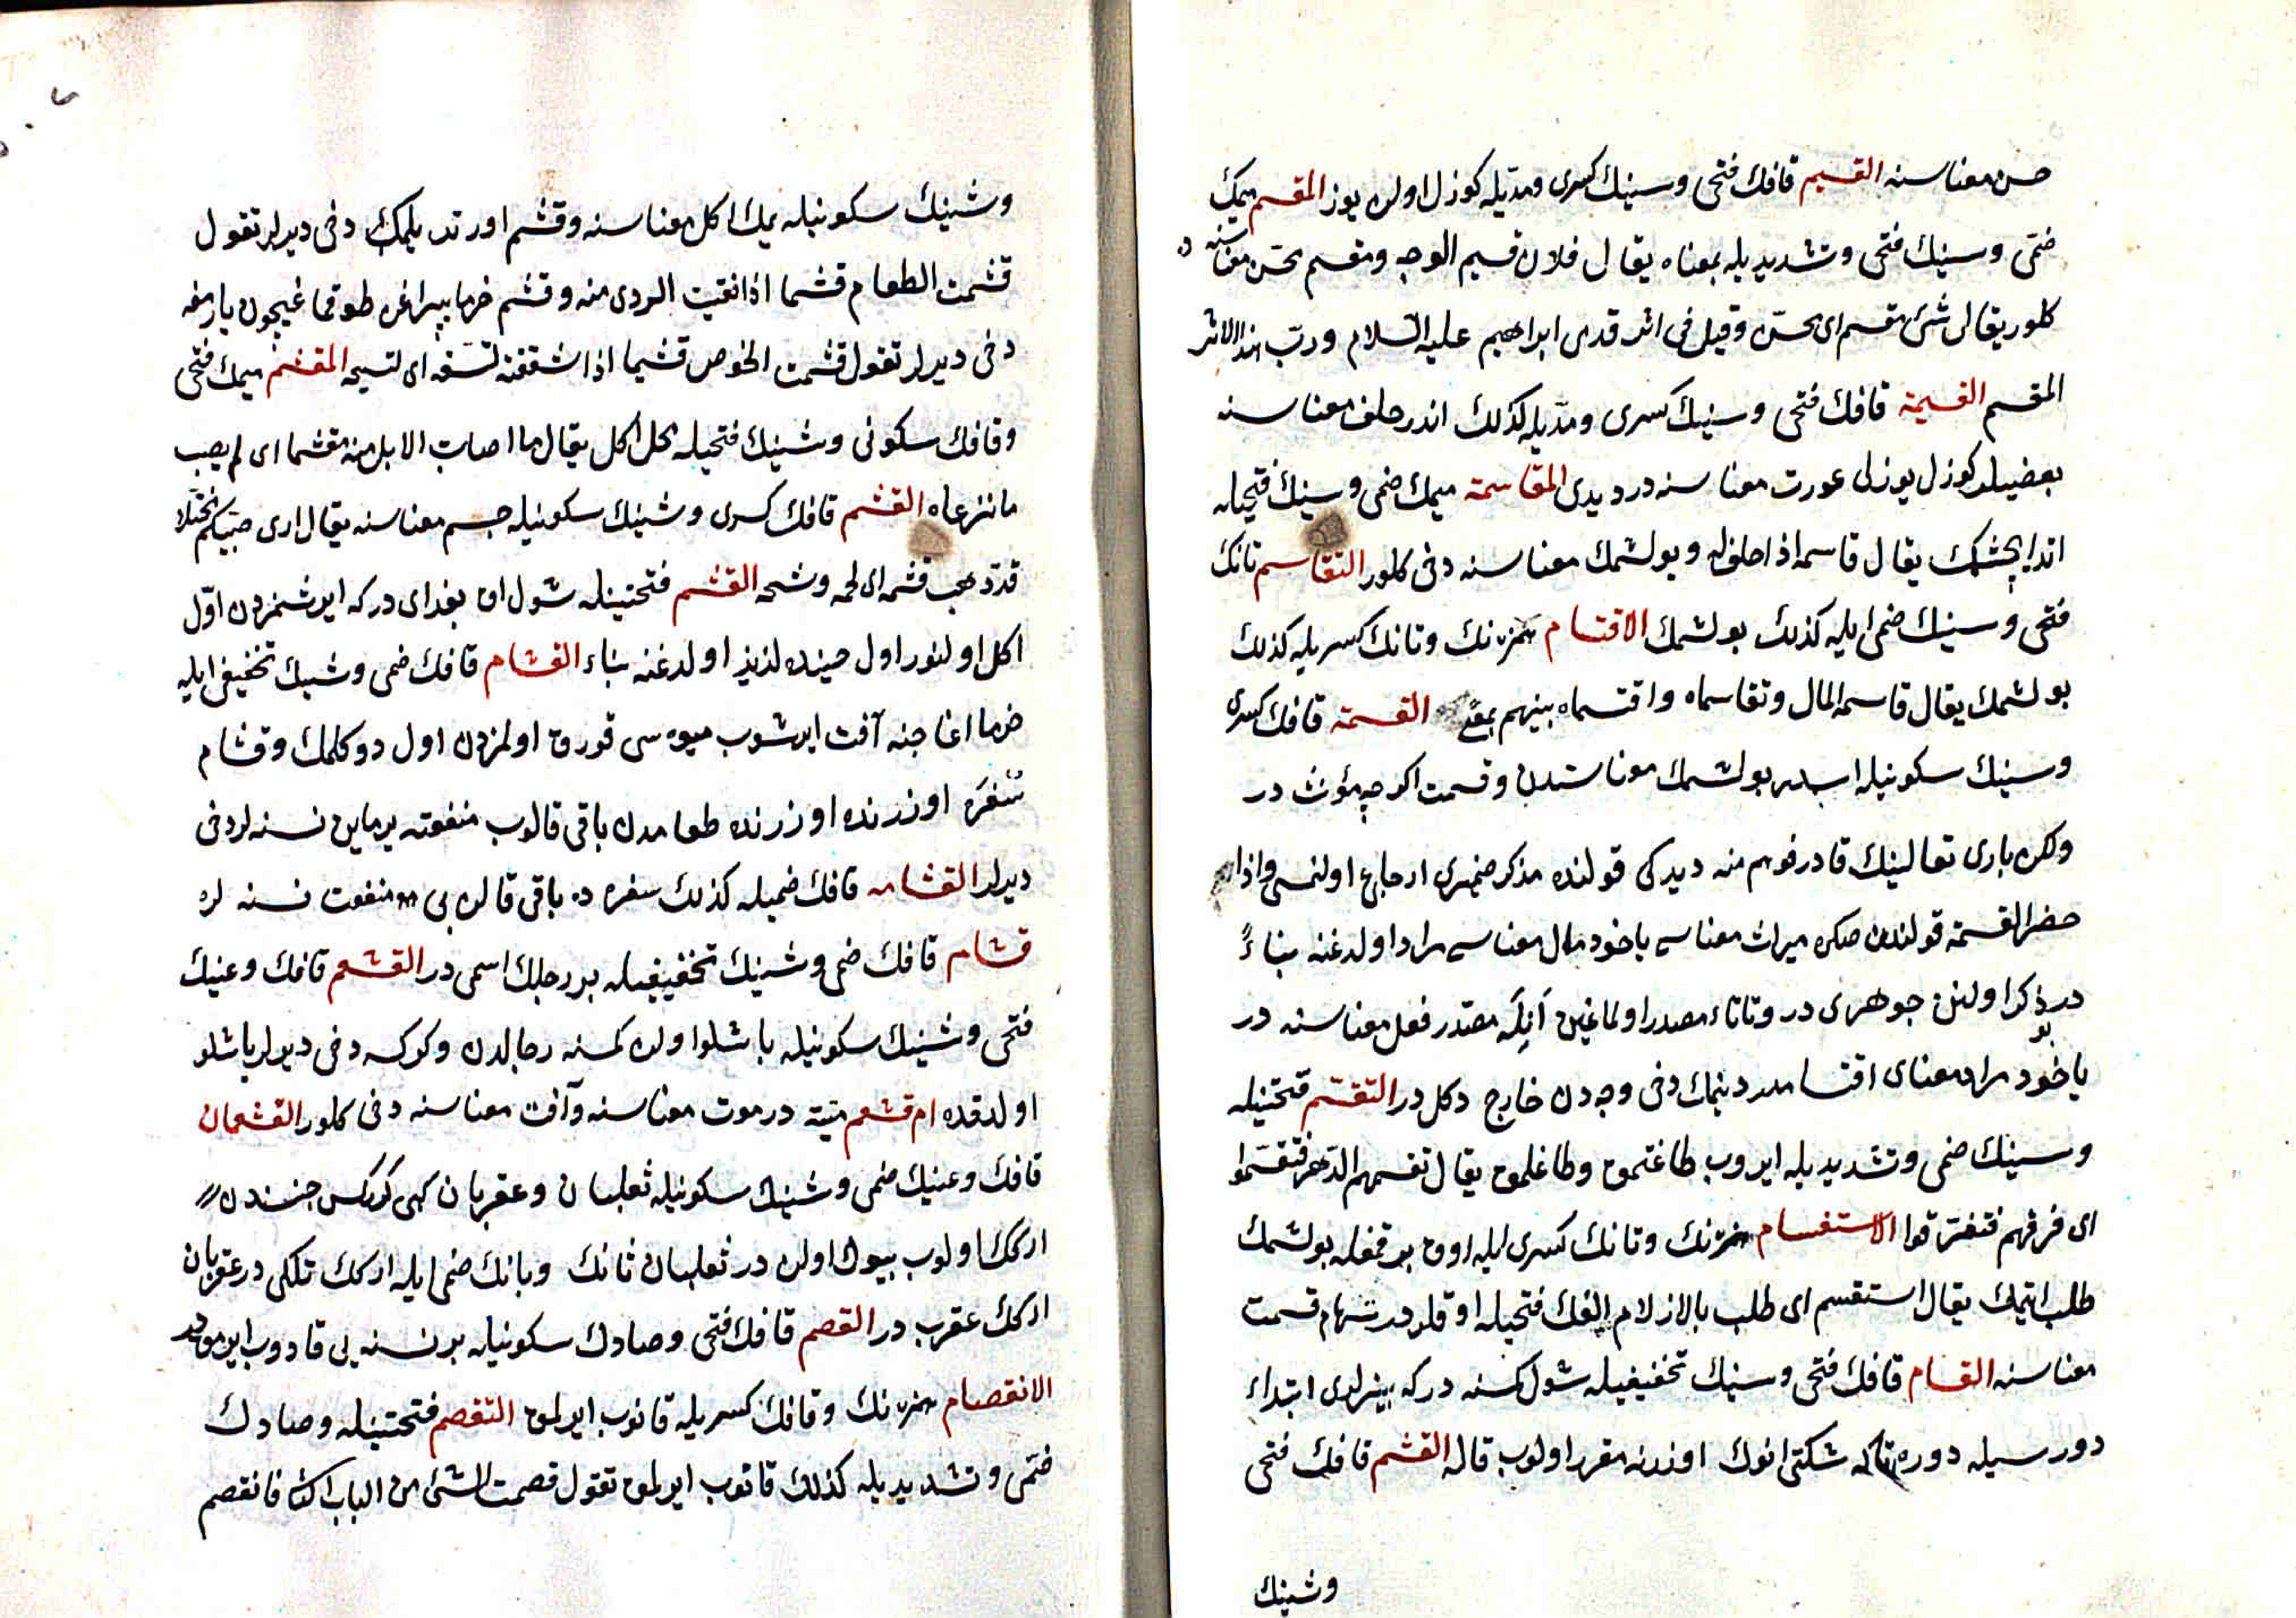 حسن معناسنه القسیم قافك فتحی وسینك كسری ومدّیله كوزل اولن یوز المقسم میمك
ضمّی وسینك فتحی وتشدیدیله بمعناه یقال فلان قسیم الوجه ومقسم محسّن معناسنه د
كلور یقال شئ مقسم ای محسّن وقیل فی اثر قدمی ابراهیم علیه السّلام وربّ هذا الاثر
المقسم القسیمة قافك فتحی وسینك كسری ومدّیله كذلك اندر حلف معناسنه
بعضیلر كوزل یوزلی عورت معناسنه در دیدی المقاسمة میمك ضمی وسینك فتحیله
اندایچشمك یقال قاسمه اذا حلف له وبولشمك معناسنه دخی كلور التقاسم تانك
فتحی وسینك ضمی ایله كذلك بولشمك الاقتسام همزه نك وتانك كسریله كذلك
بولشمك یقال قاسمه المال وتقاسماه واقتسماه بینهم بمعنی القسمة قافك كسری
وسینك سكونیله اسمدر بولشمك معناسندن وقسمت اكرچه مؤنث در
ولكن باری تعالینك فارزقوهم منه دیدكی قولنده مذكر ضمیری ارجاع اولنمسی واذا
حضر القسمة قولندن صكره میراث معناسی یاخود مال معناسی مراد اولدغنه بناءً
در ذكر اولنن جوهری در وتاتاء مصدر اولماغین اَنِڭله مصدر فعل معناسنه در
یاخود بو مراد معنای اقتسامدر دینمك دخی وجهدن خارج دكل در التقسّم فتحتینله
وسینك ضمی وتشدیدیله ایروب طاغتمق وطاغلمق یقال تقسمهم الدّهر فتقسّموا
ای فرقهم فتفرّقوا الاستقسام همزه نك وتانك كسری ایله اوق بوقمغله بولشمك
طلب ایتمك یقال استقسم ای طلب بالازلام الفك فتحیله اوقلردر سهام قسمت
معناسنه القسام قافك فتحی وسینك تخفیفیله شول كمسنه دركه بینرلری ابتداء
دورسیله دوره تاكه شكتی انوك اوزرنه مقرر اولوب قاله القشم قافك فتحی
وشینك
وشینك سكونیله یمك اكل معناسنه وقشم اورتدیلمك دخی دیرلر تقول
قشمت الطعام قشما اذا نقیت الردی منه وقشم خرما یپراغن طوقماغیچون یارمغه
دخی دیرلر تقول قشمت الخوص قشما اذا شققته لتسفه ای لتسیجه المقشم میمك فتحی
وقافك سكونی وشینك فتحیله محل اكل یقال ما اصابت الابل منه مقشما ای لم یصب
ما نزعاه القشم قافك كسری وشینك سكونیله جسم معناسنه یقال اری صبیّكم مختلا
قد ذهب قشمه ای لحمه وشحمه القشم فتحتینله شول اق بغدای دركه ایرشمزدن اوّل
اكل اولنور اول حینده لذیذ اولدغنه بناء القشام قافك ضمی وشینك تخفیفی ایله
خرما اغاجنه آفت ایرشوب میوه سی قوروق اولمزدن اول دوكلمك وقشام
سُفْرَه اوزرنده اوزرنده طعامدن باقی قالوب منفعته یرماین نسنه لر دخی
دیرلر القشامه قافك ضمیله كذلك سفره ده باقی قالن بی منفعت نسنه لره
قشام قافك ضمی وشینك تخفیفیله بر رجلك اسمی در القشعم قافك وعینك
فتحی وشینك سكونیله یاشلو اولن كمسنه رجالدن وكركسه دخی دیرلر یاشلو
اولدقده ام قشعم منیّة در موت معناسنه وآفت معناسنه دخی كلور القشعمان
قافك وعینك ضمی وشینك سكونیله ثعلبان وعقربان كبی كركس جنسندن
اركك اولوب بیوك اولن در ثعلبان ثانك وبانك ضمی ایله اركك تلكی در عقربان
اركك عقرب در القصم قافك فتحی وصادك سكونیله بر نسنه یی قادوب ایرمقدر
الانقصام همزه نك وقافك كسریله قاتوب ایرلمق التقصم فتحتینله وصادك
ضمّی وتشدیدیله كذلك قاتوب ایرلمق تقول قصمت الشئ من الباب الثانی فانقصم